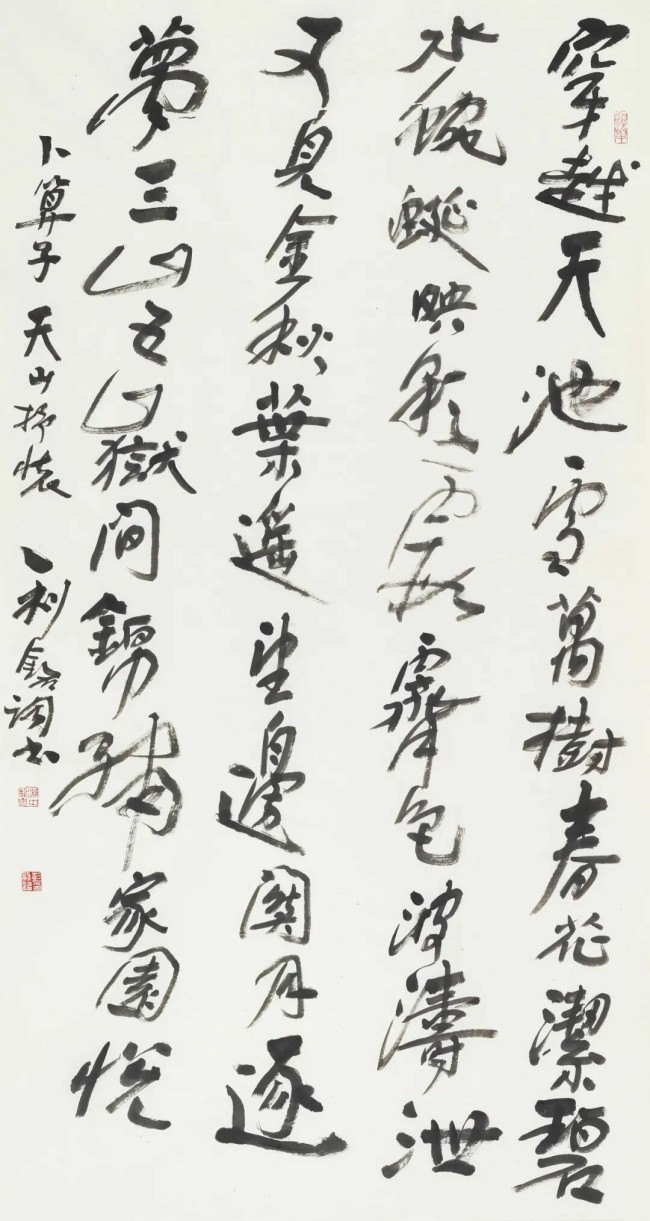 穿越天池雪萬樹春花潔碧
水蜿蜒映彩霞霽色波濤泄
又見金秋葉遥望邊關月逐
夢三山五嶽間錦繡家園悦
卜算子 天山抒懷 利 詞书